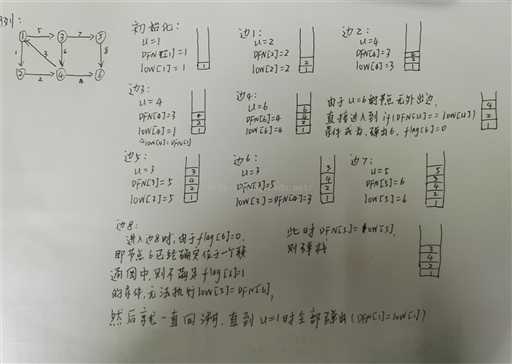 例:
初始化:
u=1
DFN[1]=1
low[1]=1
1
边1:
u=2
DFN[2]=2
low[2]=2
2
1
边2:
u=4
DFN[4]=3
low[4]=3
2
1
边3:
u=4
DFN[4]=3
low[4]=1
4
2
1
边4:
u=6
DFN[6]=4
low[6]=4
6
4
2
1
由于u=6的节点无外出边,
直接进入到if(DFN[u]==low[u])
条件成为,弹出6, flag[6]=0
4
2
1
边5:
u=3
DFN[3]=5
low[3]=5
3
4
2
1
边6:
u=3
DFN[3]=5
low[3]=DFN[4]=3
3
4
2
1
边7:
u=5
DFN[5]=6
low[5]=6
5
3
4
2
1
边8:
进入边8时,由于flag[6]=0,
即节点6已经确定位于一个强
通图中,则不满足flag[6]=1
的条件,无法执行low[5]=DFN[6],
此时DFN[5]=low[5],
则弹栈
3
4
2
1
然后就一直回溯,直到u=1时全部弹出(DFN[1]=low[1])